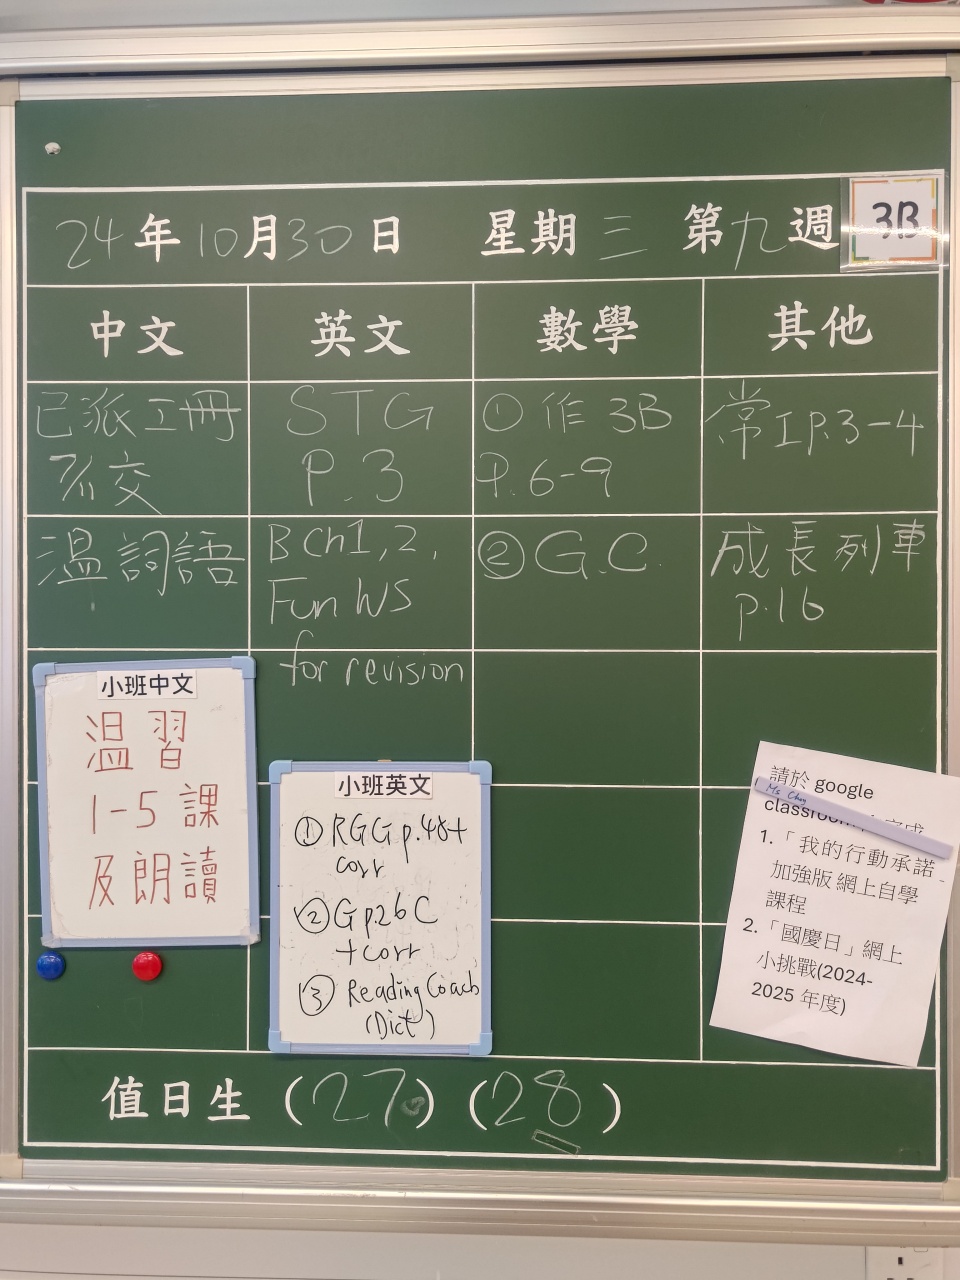 24年10月30日 星期三 第九週 3B
中文 英文 數學 其他
已派工冊
不交
STG
P.3
① 作 3B
P.6-9
常工P.3-4
溫詞語
B Ch1,2,
Fun WS
for revision
② G.C.
成長列車
p.16
小班中文
溫習
1-5課
及朗讀
小班英文
① RGG p.48+
corr
② G p.26 C
+corr
③ Reading Coach
(Dict)
請於 google
Ms Choy
classroom
1.「我的行動承諾
加強版 網上自學
課程
2.「國慶日」網上
小挑戰(2024-
2025 年度)
值日生 (27) (28)